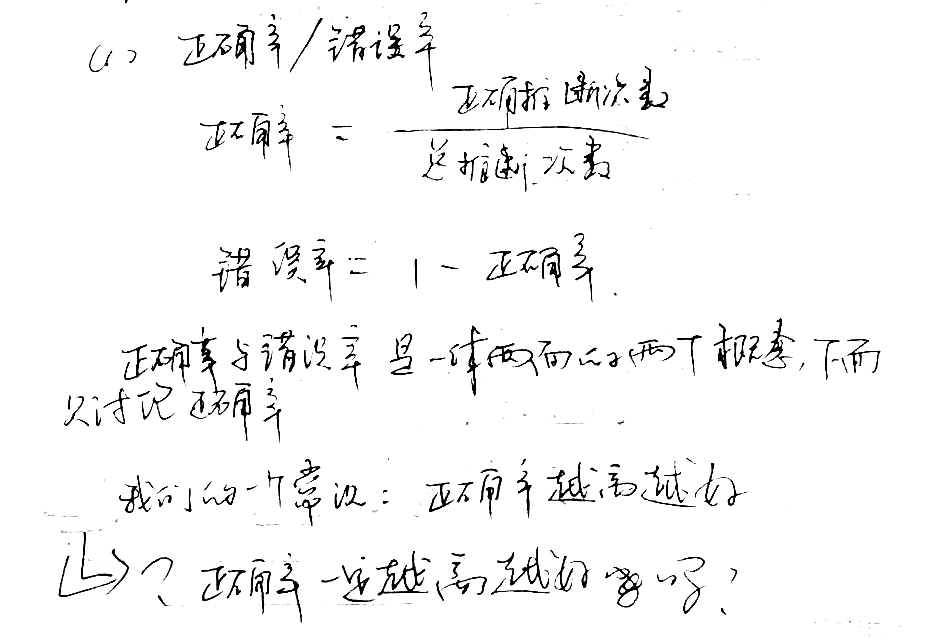 (1) 正确率/错误率
正确率 = 正确推断次数
总推断次数
错误率 = 1 - 正确率.
正确率与错误率是一体两面的两个概念,下面
只讨论正确率
我们的一个常识: 正确率越高越好
? 正确率一定越高越好吗?